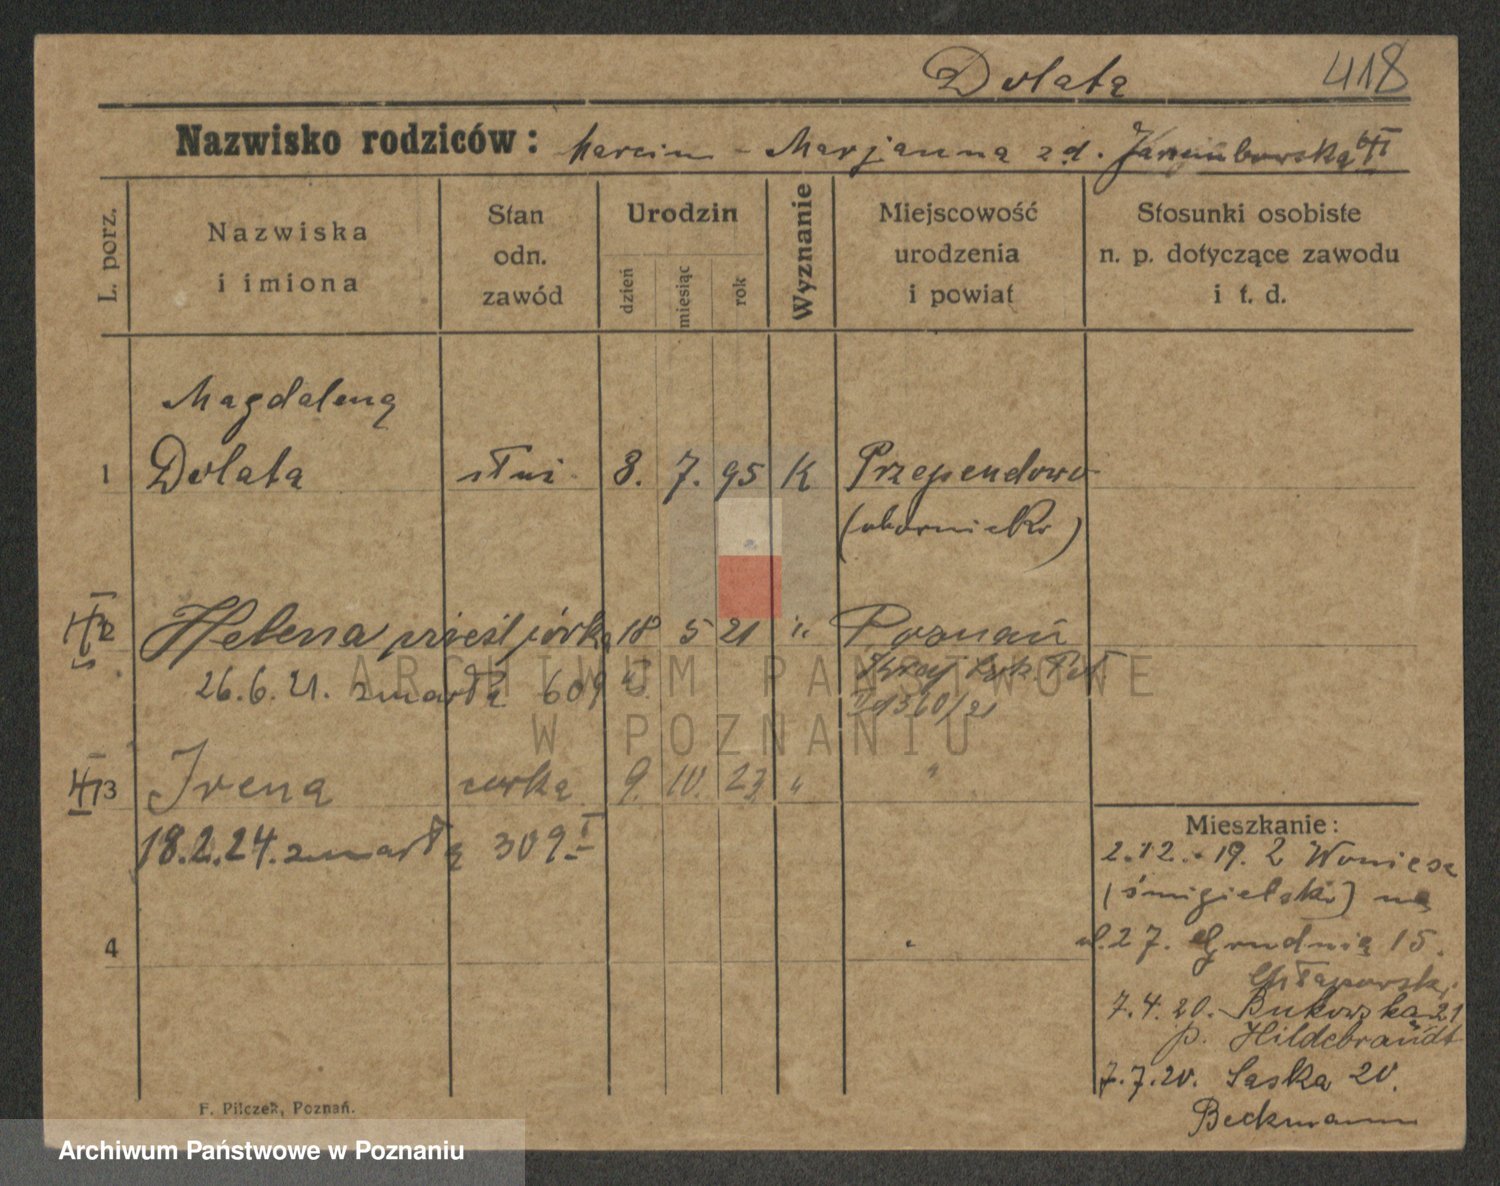 Dolata 418
Nazwisko rodziców: Marcin - Marjanna z d.
L. porz.
Nazwiska
i imiona
Stan
odn.
zawód
Urodzin
dzień
miesiąc
rok
Wyznanie
Miejscowość
urodzenia
i powiat
Stosunki osobiste
n. p. dotyczące zawodu
i t. d.
Magdalena
1 Dolata służ. 8. 7. 95 K Przependowo
(obornicki)
2 Helena córka 18 5 21 " Poznań
26.6.21. zmarła 609
3 Irena córka 9. 10. 23 " "
18.2.24. zmarła 309 I
4
Mieszkanie:
2.12. - 19. 2 Woniesc
(śmigielski) na
ul. 27. Grudnia 15.
Chłapowski
7.4.20. Bukowska 21
p. Hildebrandt
7.7.20. Saska 20.
Beckmann
F. Pilczek, Poznań.
ARCHIWUM PAŃSTWOWE
W POZNANIU
Archiwum Państwowe w Poznaniu